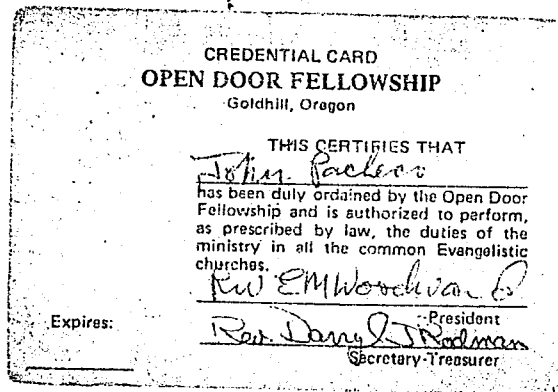 CREDENTIAL CARD
OPEN DOOR FELLOWSHIP
Goldhill, Oregon
THIS CERTIFIES THAT
John Pacheco
has been duly ordained by the Open Door
Fellowship and is authorized to perform,
as prescribed by law, the duties of the
ministry in all the common Evangelistic
churches.
President
Expires:
Rev. Darryl J Rodman
Secretary-Treasurer